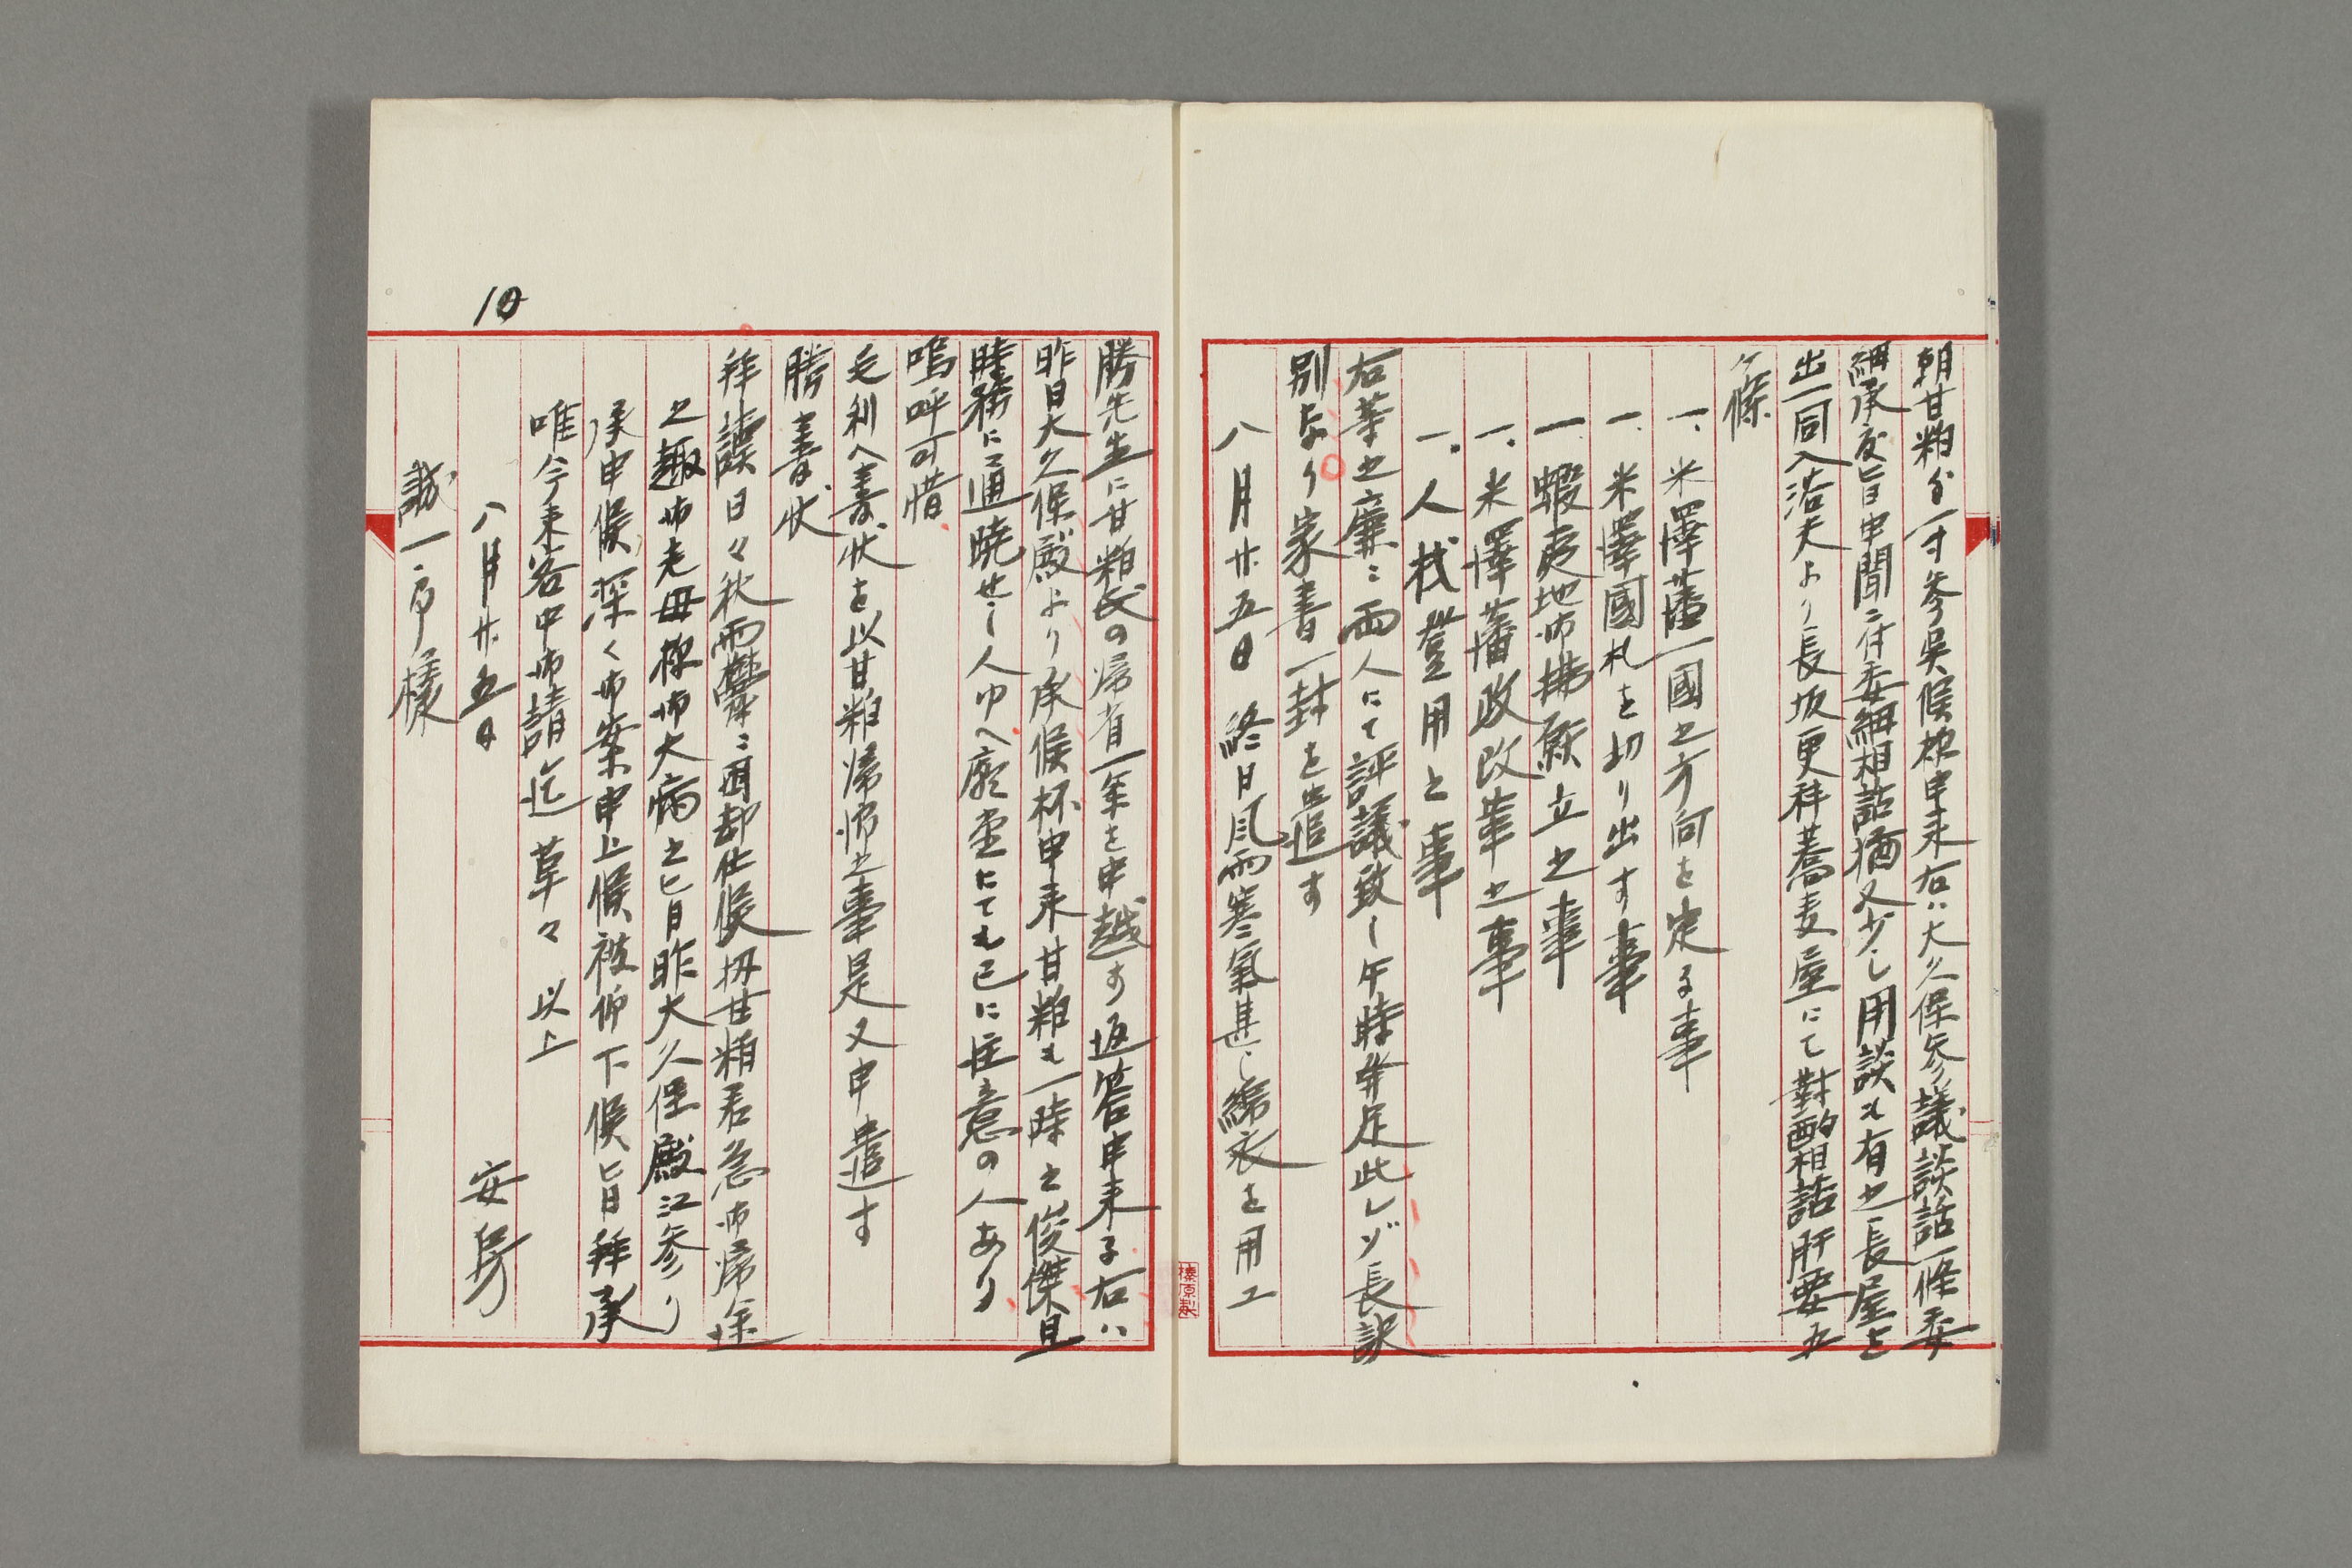 朝甘粕公一寸参呉候様申来右ハ大久保参議談話一條委
細承度旨申聞ニ付委細相話猶又少し用談も有之長屋を
出一同入浴夫より長坂更科蕎麦屋にて對酌相話肝要五
ケ條
一、米澤藩一國之方向を定る事
一、米澤國札を切り出す事
一、蝦夷地御拂願立之事
一、米澤藩政改革之事
一、人材登用之事
右等之廉ニ両人にて評議致し午時發足此レゾ長訣
別なり家書一封を遣す
八月廿五日 終日風雨寒氣甚し綿衣を用ユ
勝先生に甘粕氏の帰省一条を申越す返答申来る右ハ
昨日大久保殿より承候杯申来甘粕も一時之俊傑且
時務に通暁せし人ゆへ廟堂にても已に注意の人あり
嗚呼可惜
毛利へ書状を以甘粕帰郷之事是又申遣す
勝書状
拝讀日々秋雨鬱ニ困却仕候扨甘粕君急御帰途
之趣御老母様御大病之旨昨大久保殿江参り
承申候深く御案申上候被仰下候旨拝承
唯今来客中御請迄 草々 以上
八月廿五日 安房
誠一郎様
10
榛原製